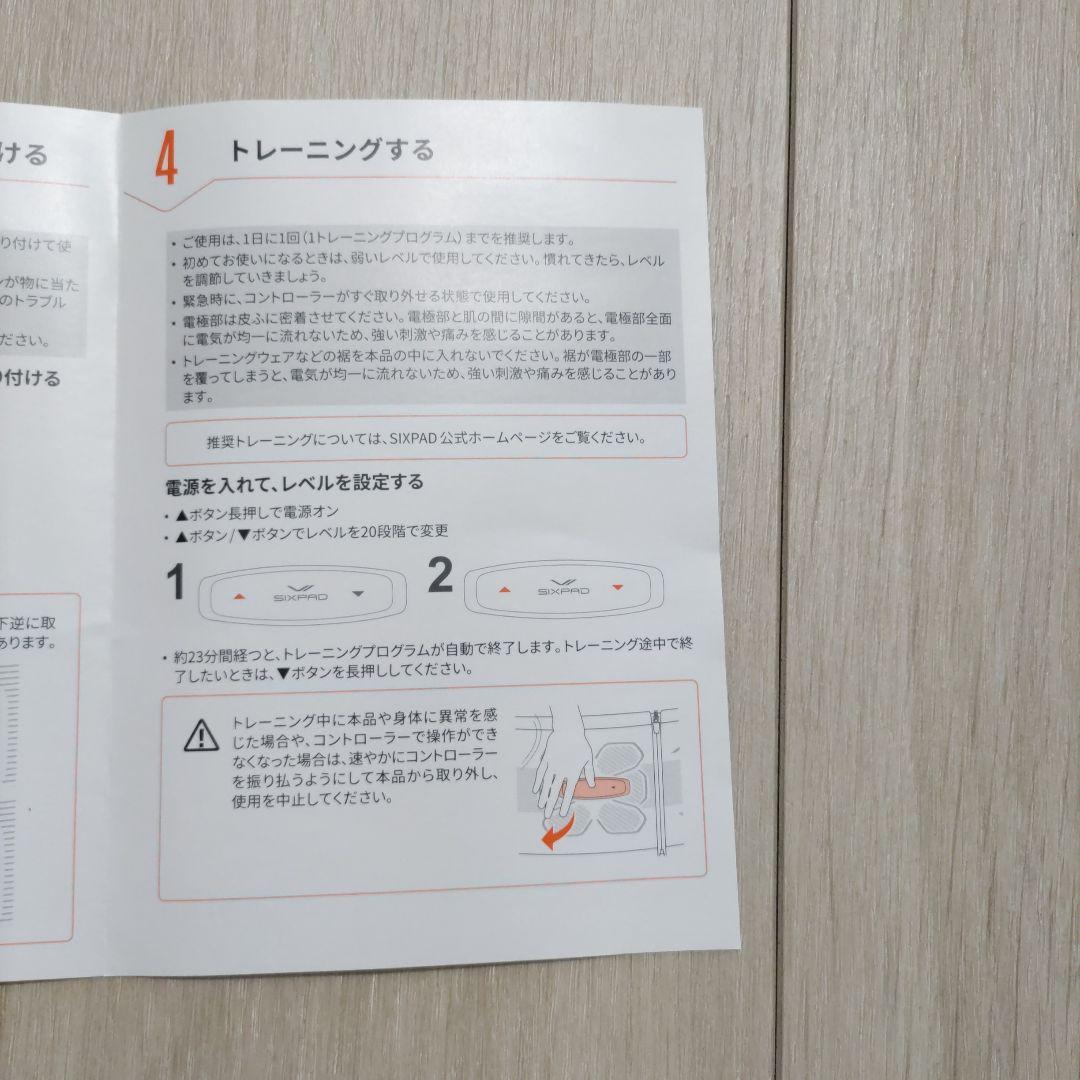 ける
り付けて使
ンが物に当た
のトラブル
ださい。
り付ける
下逆に取
あります。
4 トレーニングする
・ご使用は、1日に1回（1トレーニングプログラム）までを推奨します。
・初めてお使いになるときは、弱いレベルで使用してください。慣れてきたら、レベル
を調節していきましょう。
・緊急時に、コントローラーがすぐ取り外せる状態で使用してください。
・電極部は皮ふに密着させてください。電極部と肌の間に隙間があると、電極部全面
に電気が均一に流れないため、強い刺激や痛みを感じることがあります。
・トレーニングウェアなどの裾を本品の中に入れないでください。裾が電極部の一部
を覆ってしまうと、電気が均一に流れないため、強い刺激や痛みを感じることがあり
ます。
推奨トレーニングについては、SIXPAD 公式ホームページをご覧ください。
電源を入れて、レベルを設定する
・▲ボタン長押しで電源オン
・▲ボタン/▼ボタンでレベルを20段階で変更
1 ▲ SIXPAD ▼
2 ▲ SIXPAD ▼
・約23分間経つと、トレーニングプログラムが自動で終了します。トレーニング途中で終
了したいときは、▼ボタンを長押ししてください。
トレーニング中に本品や身体に異常を感
じた場合や、コントローラーで操作ができ
なくなった場合は、速やかにコントローラー
を振り払うようにして本品から取り外し、
使用を中止してください。